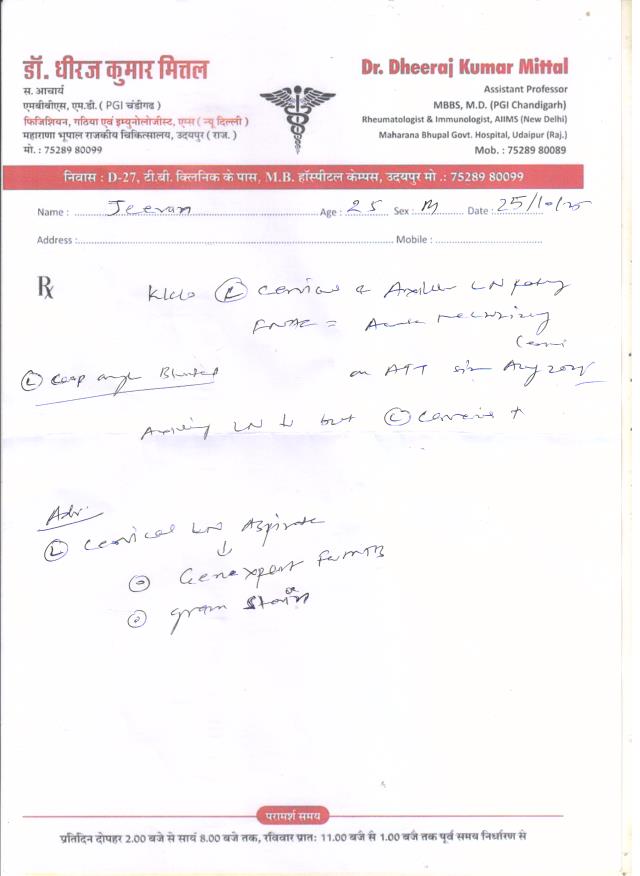 डॉ. धीरज कुमार मित्तल
स. आचार्य
एमबीबीएस, एम.डी. ( PGI चंडीगढ )
फिजिशियन, गठिया एवं इम्युनोलोजीस्ट, एम्स ( न्यू दिल्ली )
महाराणा भूपाल राजकीय चिकित्सालय, उदयपुर ( राज. )
मो. : 75289 80099
Dr. Dheeraj Kumar Mittal
Assistant Professor
MBBS, M.D. (PGI Chandigarh)
Rheumatologist & Immunologist, AIIMS (New Delhi)
Maharana Bhupal Govt. Hospital, Udaipur (Raj.)
Mob. : 75289 80089
निवास : D-27, टी.बी. क्लिनिक के पास, M.B. हॉस्पीटल केम्पस, उदयपुर मो .: 75289 80099
Name : Jeevan Age : 25 Sex : M Date : 25/10/25
Address : Mobile :
Rx
K/c/o (L) Cervical & Axillary LN
FNAC = Acute necrotizing
(L) angle Blunted
on ATT since Aug 2025
Axillary LN ↓ but (L) Cervical +
Adv.
(L) Cervical LN Aspirate
↓
Genexpert for MTB
gram stain
परामर्श समय
प्रतिदिन दोपहर 2.00 बजे से सायं 8.00 बजे तक, रविवार प्रात: 11.00 बजे से 1.00 बजे तक पूर्व समय निर्धारण से